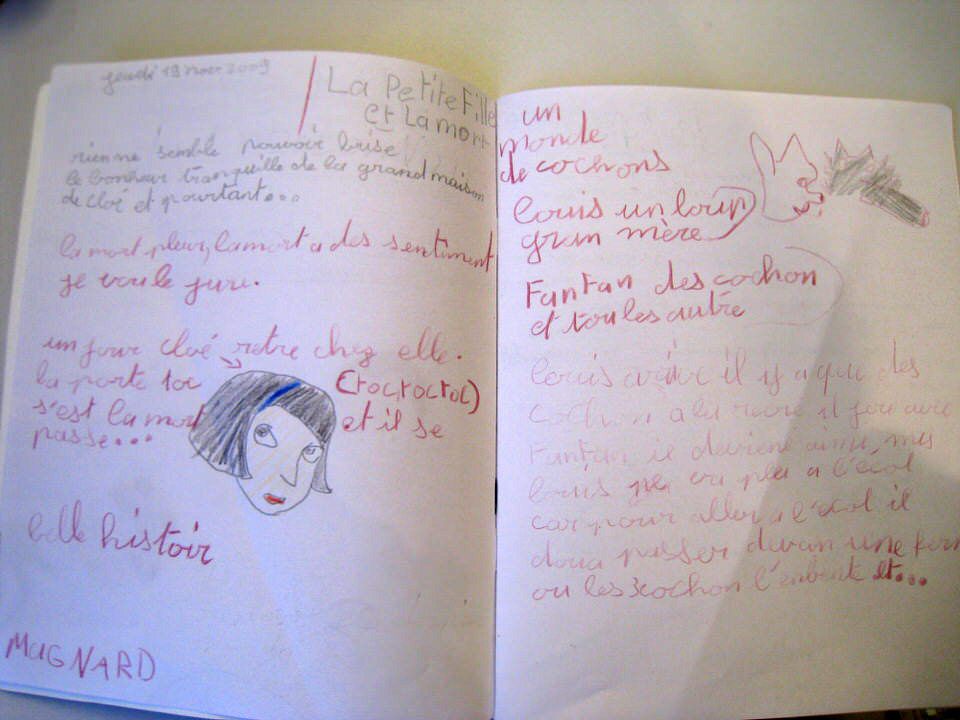 jeudi 19 nov 2009
La Petite Fille
et La mort
rien ne semble pouvoir brise
le bonheur tranquille de la grand maison
de cloé et pourtant...
la mort pleur, la mort a des sentiment
je vou le jure.
un jour cloé retre chez elle.
la porte toc (toc, toc toc)
s'est la mort et il se
passe...
belle histoir
MAGNARD
un
monde
de cochons
louis un loup
gran mère
Fantan des cochon
et tou les autre
louis il y a que des
cochon a la il joue avec
Fantan ie deviene amis, mes
louis pe va plu a l'écol
car pour aller a l'écol il
doua passer devan une ferm
ou les 3 cochon et...